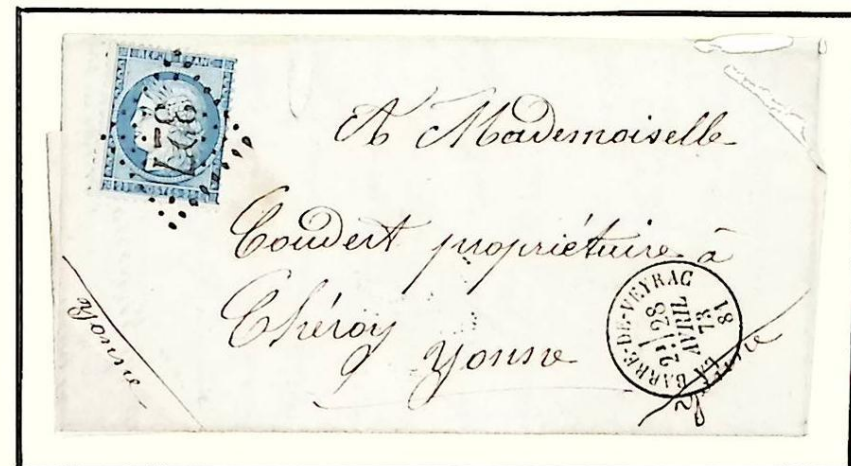 REPUB. FRANC.
327
POSTE
A Mademoiselle
Coudert propriétaire à
Chéroy
Yonne
Yonne
LA BARRE-DE-VEYRAC
2E
28
AVRIL
73
81